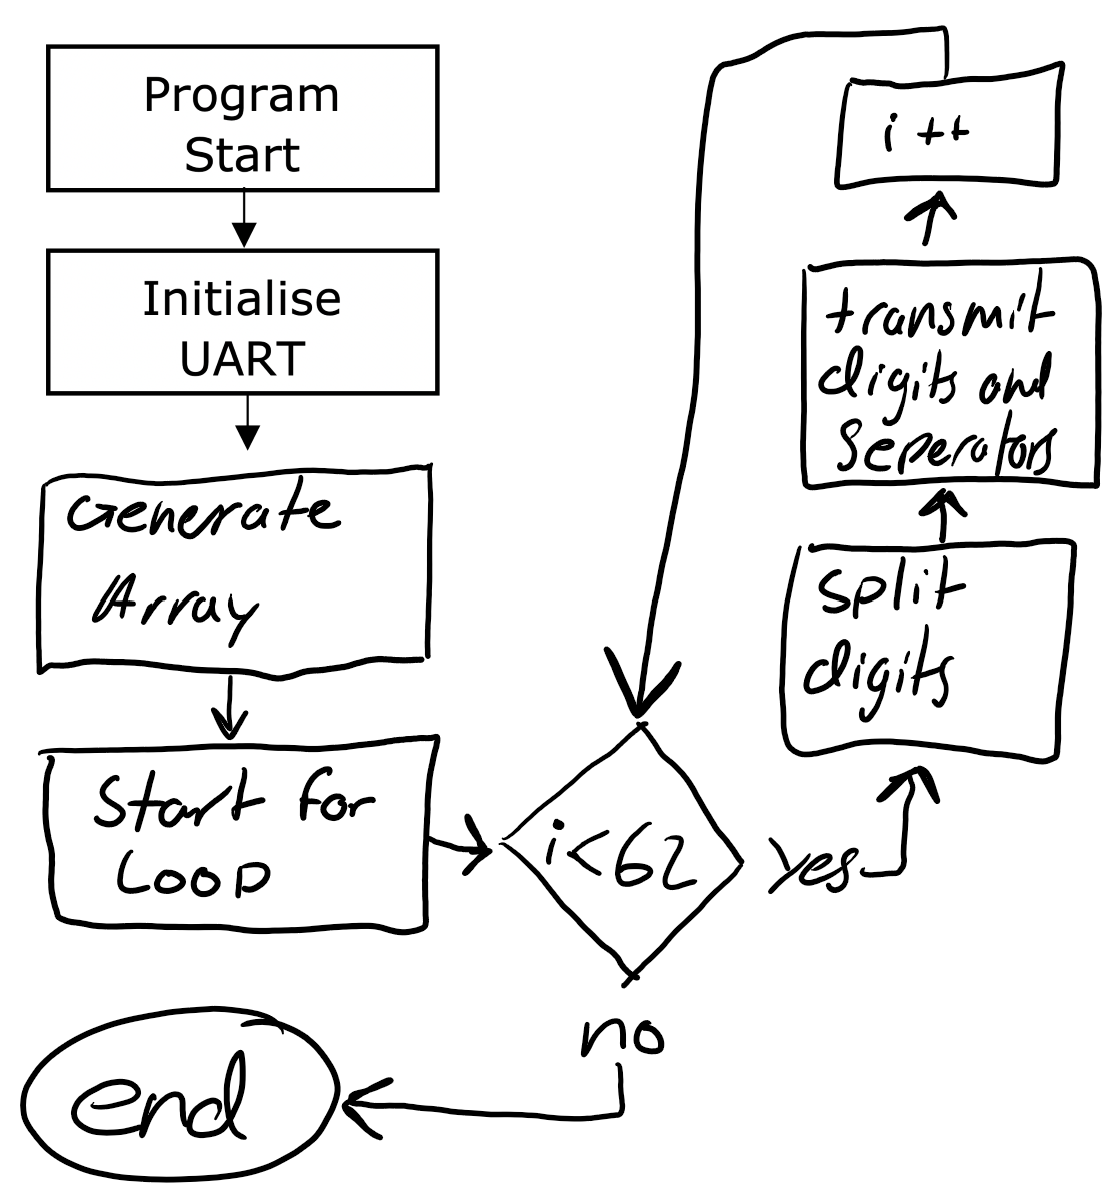 Program
Start
Initialise
UART
Generate
Array
Start for
Loop
i<62
yes
split
digits
transmit
digits and
Seperators
i ++
no
end